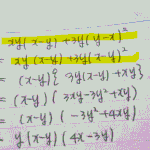 xy(x-y) + 3y(y-x)²
= xy(x-y) + 3y(x-y)²
= (x-y){ 3y(x-y) + xy}
= (x-y) ( 3xy - 3y² + xy)
= (x-y) ( -3y² + 4xy)
= y(x-y) ( 4x - 3y)